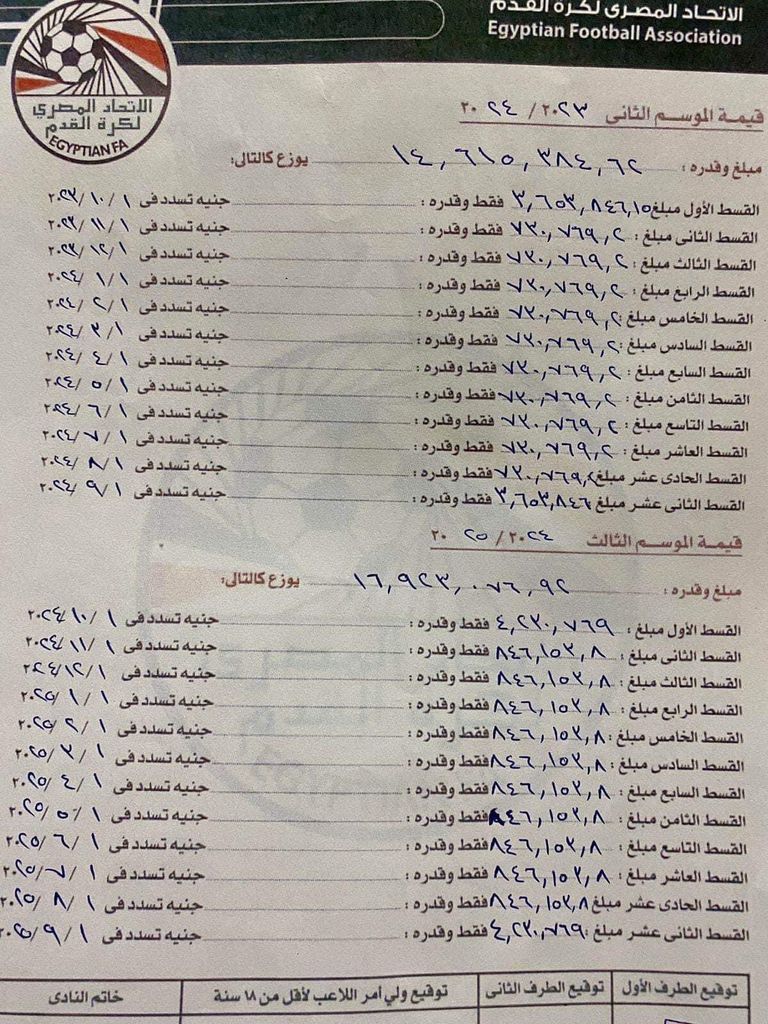 الاتحاد المصرى لكرة القدم
Egyptian Football Association
الاتحاد المصري
لكرة القدم
EGYPTIAN FA
قيمة الموسم الثانى ٢٠٢٣ / ٢٠٢٤
مبلغ وقدره : ١٤,٦١٥,٣٨٤,٦٢ يوزع كالتالى:
القسط الأول مبلغ ٣,٦٥٣,٨٤٦,١٥ فقط وقدره : جنيه تسدد فى ١ / ١٠ / ٢٠٢٣
القسط الثانى مبلغ : ٧٣٠,٧٦٩,٢ فقط وقدره : جنيه تسدد فى ١ / ١١ / ٢٠٢٣
القسط الثالث مبلغ : ٧٣٠,٧٦٩,٢ فقط وقدره : جنيه تسدد فى ١ / ١٢ / ٢٠٢٣
القسط الرابع مبلغ : ٧٣٠,٧٦٩,٢ فقط وقدره : جنيه تسدد فى ١ / ١ / ٢٠٢٤
القسط الخامس مبلغ : ٧٣٠,٧٦٩,٢ فقط وقدره : جنيه تسدد فى ١ / ٢ / ٢٠٢٤
القسط السادس مبلغ : ٧٣٠,٧٦٩,٢ فقط وقدره : جنيه تسدد فى ١ / ٣ / ٢٠٢٤
القسط السابع مبلغ : ٧٣٠,٧٦٩,٢ فقط وقدره : جنيه تسدد فى ١ / ٤ / ٢٠٢٤
القسط الثامن مبلغ : ٧٣٠,٧٦٩,٢ فقط وقدره : جنيه تسدد فى ١ / ٥ / ٢٠٢٤
القسط التاسع مبلغ : ٧٣٠,٧٦٩,٢ فقط وقدره : جنيه تسدد فى ١ / ٦ / ٢٠٢٤
القسط العاشر مبلغ : ٧٣٠,٧٦٩,٢ فقط وقدره : جنيه تسدد فى ١ / ٧ / ٢٠٢٤
القسط الحادى عشر مبلغ : ٧٣٠,٧٦٩,٢ فقط وقدره : جنيه تسدد فى ١ / ٨ / ٢٠٢٤
القسط الثانى عشر مبلغ : ٣,٦٥٣,٨٤٦ فقط وقدره : جنيه تسدد فى ١ / ٩ / ٢٠٢٤
قيمة الموسم الثالث ٢٠٢٤ / ٢٠٢٥
مبلغ وقدره : ١٦,٩٢٣,٠٧٦,٩٢ يوزع كالتالى:
القسط الأول مبلغ : ٤,٢٣٠,٧٦٩ فقط وقدره : جنيه تسدد فى ١ / ١٠ / ٢٠٢٤
القسط الثانى مبلغ : ٨٤٦,١٥٣,٨ فقط وقدره : جنيه تسدد فى ١ / ١١ / ٢٠٢٤
القسط الثالث مبلغ : ٨٤٦,١٥٣,٨ فقط وقدره : جنيه تسدد فى ١ / ١٢ / ٢٠٢٤
القسط الرابع مبلغ : ٨٤٦,١٥٣,٨ فقط وقدره : جنيه تسدد فى ١ / ١ / ٢٠٢٥
القسط الخامس مبلغ : ٨٤٦,١٥٣,٨ فقط وقدره : جنيه تسدد فى ١ / ٢ / ٢٠٢٥
القسط السادس مبلغ : ٨٤٦,١٥٣,٨ فقط وقدره : جنيه تسدد فى ١ / ٣ / ٢٠٢٥
القسط السابع مبلغ : ٨٤٦,١٥٣,٨ فقط وقدره : جنيه تسدد فى ١ / ٤ / ٢٠٢٥
القسط الثامن مبلغ : ٨٤٦,١٥٣,٨ فقط وقدره : جنيه تسدد فى ١ / ٥ / ٢٠٢٥
القسط التاسع مبلغ : ٨٤٦,١٥٣,٨ فقط وقدره : جنيه تسدد فى ١ / ٦ / ٢٠٢٥
القسط العاشر مبلغ : ٨٤٦,١٥٣,٨ فقط وقدره : جنيه تسدد فى ١ / ٧ / ٢٠٢٥
القسط الحادى عشر مبلغ ٨٤٦,١٥٣,٨ فقط وقدره : جنيه تسدد فى ١ / ٨ / ٢٠٢٥
القسط الثانى عشر مبلغ : ٤,٢٣٠,٧٦٩ فقط وقدره : جنيه تسدد فى ١ / ٩ / ٢٠٢٥
توقيع الطرف الأول توقيع الطرف الثانى توقيع ولي أمر اللاعب لأقل من ١٨ سنة خاتم النادى